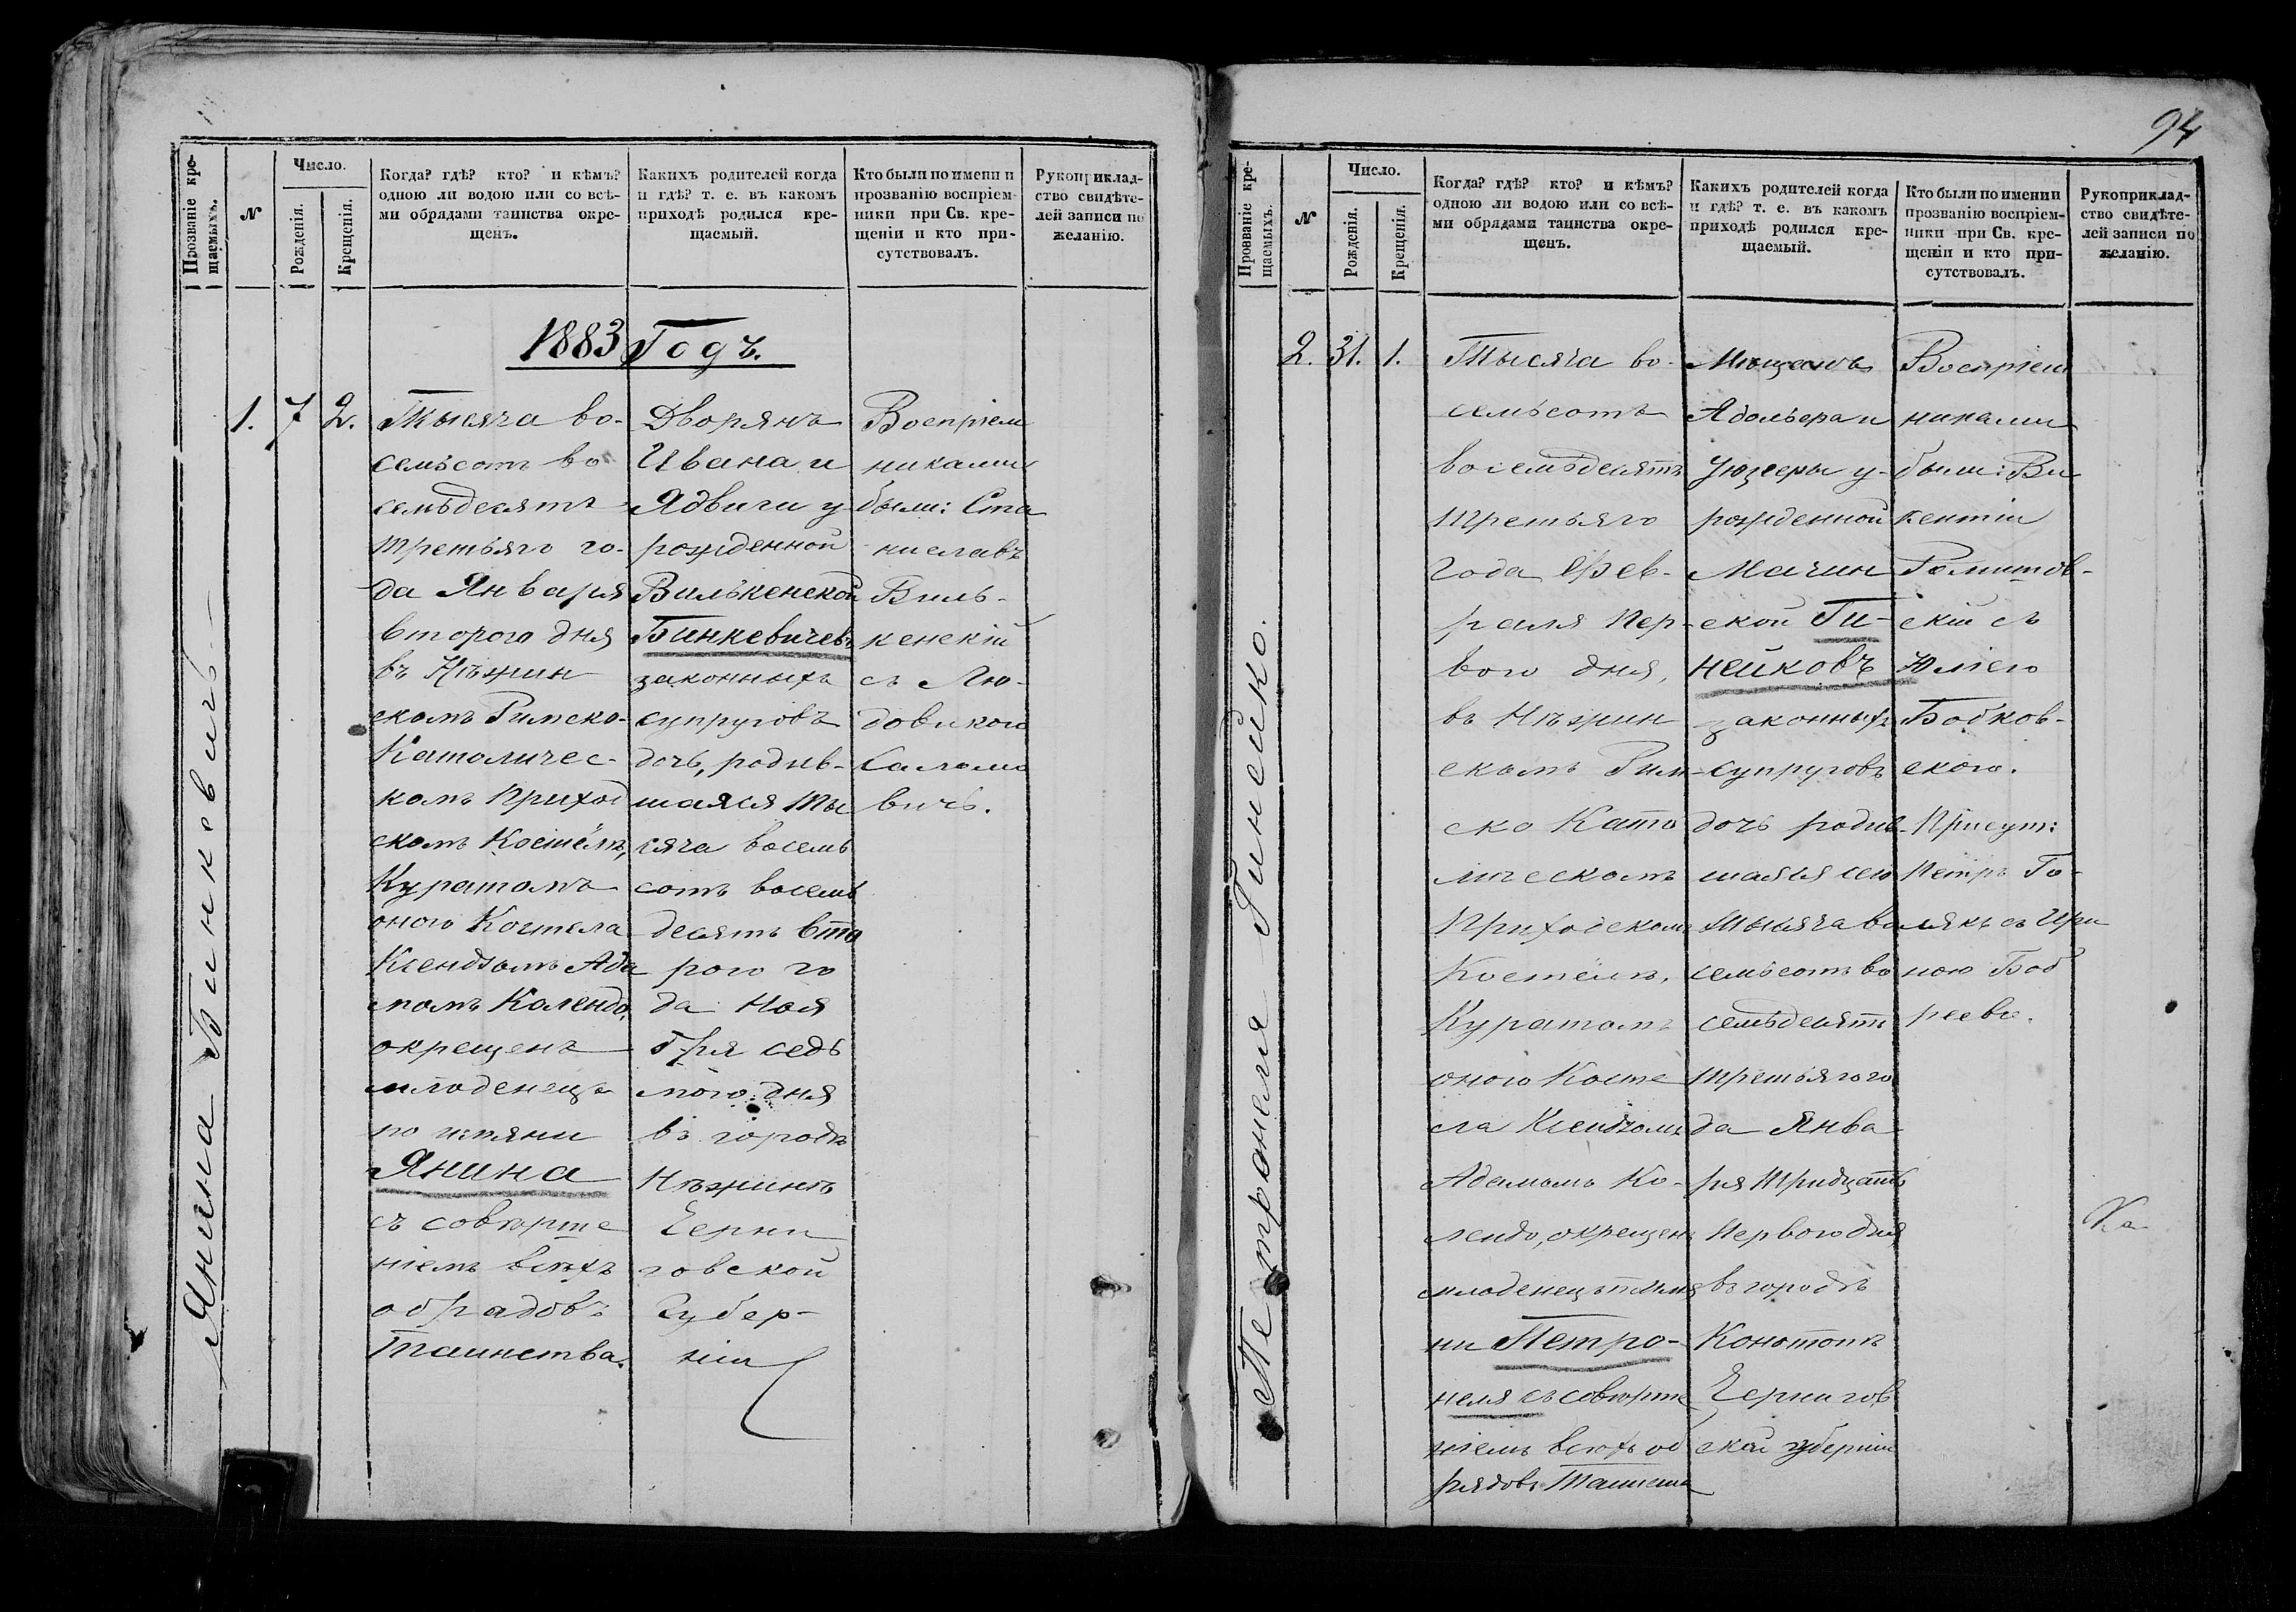 94
Прозваніе кре-
щаемыхъ.
№
Число.
Рожденія.
Крещенія.
Когда? гдѣ? кто? и кѣмъ?
одною ли водою или со всѣ-
ми обрядами таинства окре-
щенъ.
Какихъ родителей когда
и гдѣ? т. е. въ какомъ
приходѣ родился кре-
щаемый.
Кто были по имени и
прозванію воспріем-
ники при Св. кре-
щеніи и кто при-
сутствовалъ.
Рукоприклад-
ство свидѣте-
лей записи по
желанію.
1883 Годъ.
Янина Бинкевичъ
1. 7 2.
Тысяча во-
семьсотъ во
семьдесятъ
третьяго го-
да Января
втораго дня
въ Нѣжин
скомъ Римско-
Католичес-
комъ Приход
скомъ Костёлѣ,
Куратомъ
оного Костела
Ксендзомъ Ада
момъ Колендо,
окрещенъ
младенецъ
по имяни
Янина
съ соверше
ніемъ всѣхъ
обрядовъ
Таинства.
Дворянъ
Ивана и
Ядвиги у-
рожденной
Вилькенской
Бинкевичевъ
законныхъ
супруговъ
дочь, родив-
шаяся ты
сяча восемь
сотъ восемь
десятъ вто
рого го
да Ноя
бря седь
мого дня
въ городѣ
Нѣжинѣ
Черни
говской
Губер-
ніи
Воспріем
никами
были: Ста
ниславъ
Виль-
кенскій
съ Лю-
довикою
Саломо
вичъ.
Прозваніе кре-
щаемыхъ.
№
Число.
Рожденія.
Крещенія.
Когда? гдѣ? кто? и кѣмъ?
одною ли водою или со всѣ-
ми обрядами таинства окре-
щенъ.
Какихъ родителей когда
и гдѣ? т. е. въ какомъ
приходѣ родился кре-
щаемый.
Кто были по имени и
прозванію воспріем-
ники при Св. кре-
щеніи и кто при-
сутствовалъ.
Рукоприклад-
ство свидѣте-
лей записи по
желанію.
Петронеля Гинейко.
2. 31. 1.
Тысяча во-
семьсотъ
восемьдесятъ
третьяго
года Фев-
раля пер-
вого дня,
въ Нѣжин
скомъ Рим-
ско Като
лическомъ
Приходскомъ
Костёлѣ,
Куратомъ
оного Косте
ла Ксендзомъ
Адамомъ Ко-
лендо, окрещенъ
младенецъ по имя
ни Петро-
неля съ соверше
ніемъ всѣхъ об
рядовъ Таинства
Мѣщанъ
Адольфа и
Юзефы у-
рожденной
Мачин
ской Ги-
нейковъ
законныхъ
супруговъ
дочь родив-
шаяся сего
тысяча во
семьсотъ во
семьдесятъ
третьяго го
да Янва
ря тридцать
первого дня
въ городѣ
Конотопѣ
Чернигов
ской губерніи
Воспріем
никами
были: Ви
кентій
скій съ
Юліею
Бобков-
скою.
Присут:
Петръ Го-
лякъ съ Ири
ною Боб
реевэ.
Ка